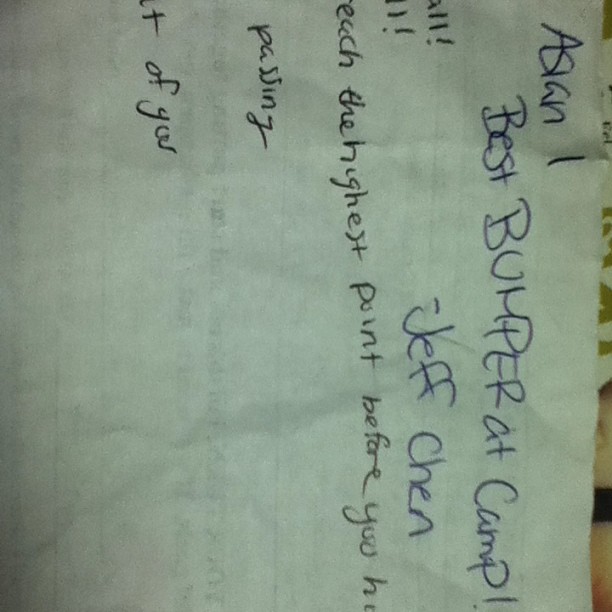 Asian 1
Best BUMPER at Camp!
-Jeff Chen
all!
ll!
reach the highest point before you hi
passing
t of your